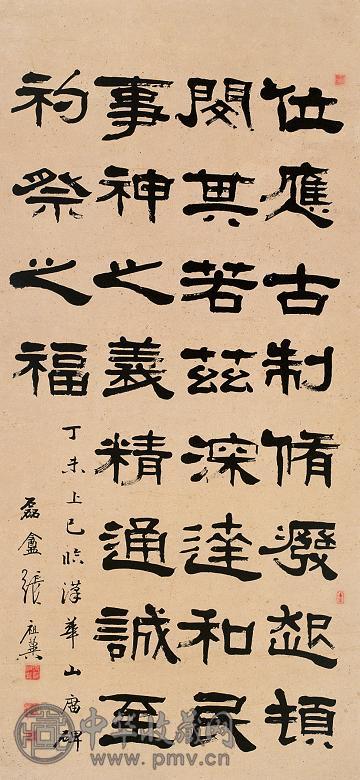 位應古制脩廢起頓
閔其若茲深達和民
事神之義精通誠至
礿祭之福
丁未上巳臨漢華山廟碑
磊盦張祖翼
中华收藏网
www.pmv.cn